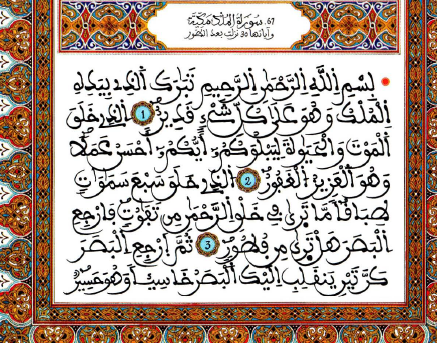 67. سورة الملك مكية
وآياتها 30 نزلت بعد الطور
بِسْمِ اللَّهِ الرَّحْمَٰنِ الرَّحِيمِ تَبَٰرَكَ الَّذِي بِيَدِهِ
الْمُلْكُ وَهُوَ عَلَىٰ كُلِّ شَيْءٍ قَدِيرٌ 1 الَّذِي خَلَقَ
الْمَوْتَ وَالْحَيَوٰةَ لِيَبْلُوَكُمْ أَيُّكُمْ أَحْسَنُ عَمَلًا
وَهُوَ الْعَزِيزُ الْغَفُورُ 2 الَّذِي خَلَقَ سَبْعَ سَمَٰوَاتٍ
طِبَاقًا مَّا تَرَىٰ فِي خَلْقِ الرَّحْمَٰنِ مِن تَفَٰوُتٍ فَارْجِعِ
الْبَصَرَ هَلْ تَرَىٰ مِن فُطُورٍ 3 ثُمَّ ارْجِعِ الْبَصَرَ
كَرَّتَيْنِ يَنقَلِبْ إِلَيْكَ الْبَصَرُ خَاسِئًا وَهُوَ حَسِيرٌ